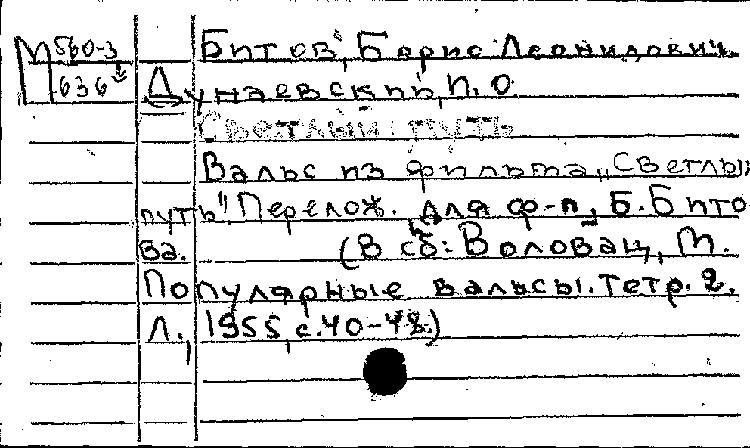 М 560-3
636
Битов, Борис Леонидович.
Дунаевский, И. О.
Светлый путь
Вальс из фильма „Светлый
путь". Перелож. для ф-п., Б. Бито
ва. (В сб: Воловац, М.
Популярные вальсы. Тетр. 2.
Л., 1955, с. 40-48.)